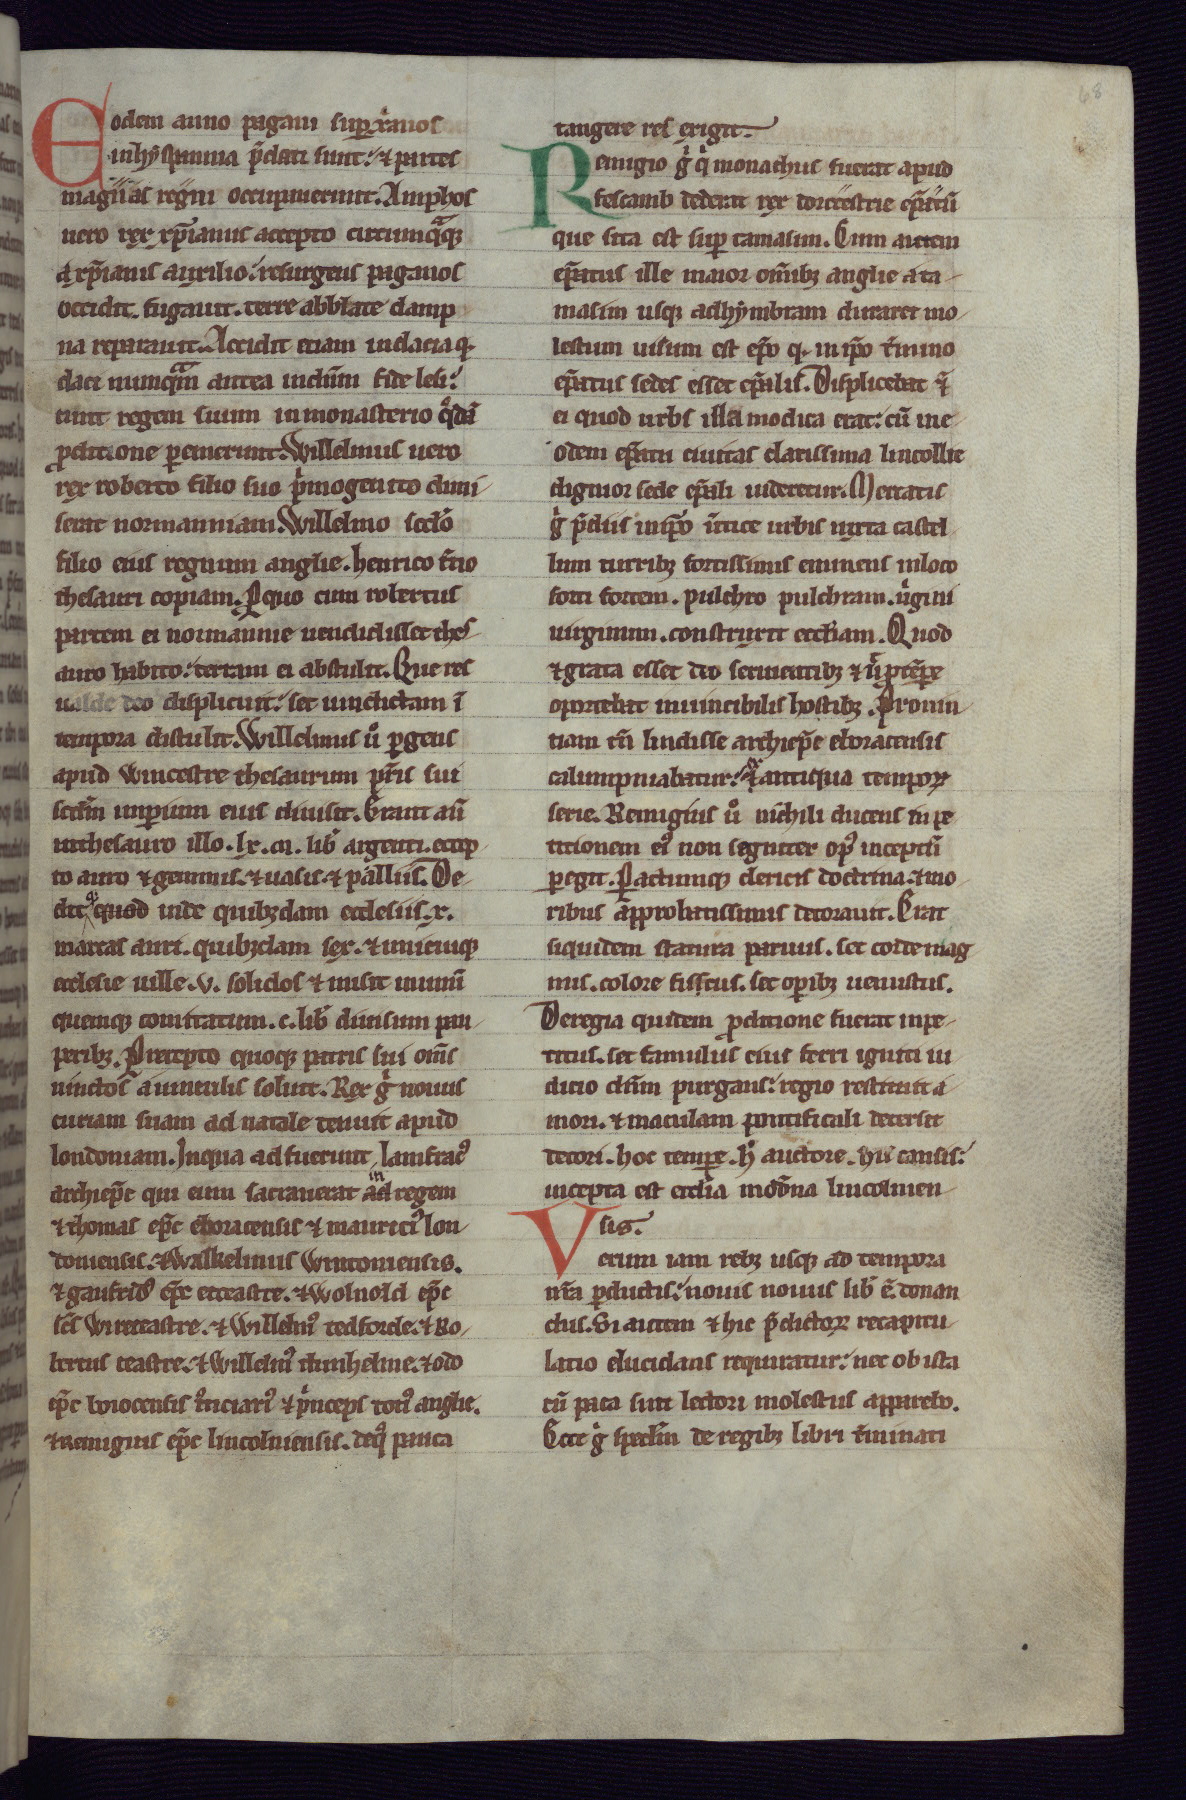 68
Eodem anno pagani sup xr̄anos
in hẏspannia p̄dati sunt: ⁊ partes
magnas regni occupauerunt. Amphos
uero rex xp̄ianus accepto circumq̄q;
a xp̄ianis auxilio: resurgens paganos
occidit. fugauit. terre abblate damp
na reparauit. Accidit etiam in dacia q̵
daci nunq̄m antea indm̄ fide lesi:
runt regem suum in monasterio q̊dā
ꝓditione ꝑemerunt. Willelmus uero
rex roberto filio suo p̍mogenito dimi
serat normanniam. Willelmo scd̄o
filio eius regnum anglie. henrico t̍cio
thesauri copiam. Pquo cum robertus
partem ei normannie uendidisset thes
auro habito: terram ei abstulit. Que res
ualde deo displicuit: set uindictam ī
tempora distulit. Willelmus ů ꝑgens
apud Wincestre thesaurum pr̄is sui
scdm̄ imꝑium eius diuisit. Erant aū
in thesauro illo. lx. m̄. lib̄ argenti. excep
to auro ⁊ gemmis. ⁊ uasis. ⁊ palliis. De
dit q̵ quod inde quibꝫdam ecclesiis. x.
marcas auri. quibꝫdam sex. ⁊ unicuiq;
ecclesie uille. v. solidos ⁊ misit in unū
quemq; comitatum. c. lib̄ diuisum pau
peribꝫ. Precepto quoq; patris sui om̄s
uinctos a uinculis soluit. Rex g̍ nouus
curiam suam ad natale tenuit apud
londoniam. In qua ad fuerunt lamfrac⁹
archiep̄c qui eum sacrauerat ad in regem
⁊ thomas ep̄c eboracensis ⁊ maurici⁹ lon
doniensis. ⁊ Walkelinus Wintoniensis.
⁊ gaufrid⁹ ep̄c excestre. ⁊ Wolnold ep̄c
sc̄s Wirecestre. ⁊ Willelm⁹ tedforde. ⁊ Ro
bertus cestre. ⁊ Willelm⁹ dunhelme. ⁊ odo
ep̄c boiocensis i̍ticiari⁹ ⁊ p̍nceps toti⁹ anglie.
⁊ Remigius ep̄c lincolniensis. de q̊ pauca
tangere res exigit.
Remigio g̍ q̍ monachus fuerat apud
fescamb dederat rex dorcestrie ep̄atū
que sita est sup tamasim. Cum autem
ep̄atus ille maior om̄ibꝫ anglie a ta
masim usq; ad hẏmbram duraret mo
lestum uisum est ep̄o q̵ in ip̄o t̍mino
ep̄atus sedes esset ep̄alis. Displicebat ⁊̄
ei quod urbs illa modica erat: cū in e
odem ep̄atu ciuitas clarissima lincollie
dignior sede ep̄ali uideretur. Mercatis
g̍ p̄diis in ip̄o u̍tice urbis iuxta castel
lum turribꝫ fortissimis eminens in loco
forti fortem. pulchro pulchram. u̍gini
uirginum. construxit eccl̄iam. Quod
⁊ grata esset deo seruientibꝫ ⁊ ū̍ ꝓ tēpe
oportebat inuincibilis hostibꝫ. Prouin
tiam tn̄ lindisse archiep̄c eboracensis
calumpniabatur: ⁊ antiqua temporꝝ
serie. Remigius ů nichili ducens in pe
titionem ei⁹ non segniter op⁹ inceptū
ꝑegit. Pactumq; clericis doctrina. ⁊ mo
ribus approbatissimis decorauit. Erat
siquidem statura paruus. set corde mag
nus. colore fuscus. set oꝑibꝫ uenustus.
De regia quidem ꝓditione fuerat inpe
titus. set famulus eius ferri igniti iu
dicio dn̄m purgans: regio restituit a
mori. ⁊ maculam pontificali detersit
decori. hoc tempe. h̊ auctore. hii causis:
incepta est eccl̄ia mod̄na lincolnien
sis.
Verum iam rebꝫ usq; ad tempora
nr̄a ꝑductis: nouis nouus lib̄ ē̄ donan
dus. Si autem ⁊ hic p̄dictorꝝ recapitu
latio elucidans requiratur: nec ob ista
cū pauca sunt lectori molestus apparebo.
Ecce g̍ speclm̄ de regibꝫ libri t̍minati